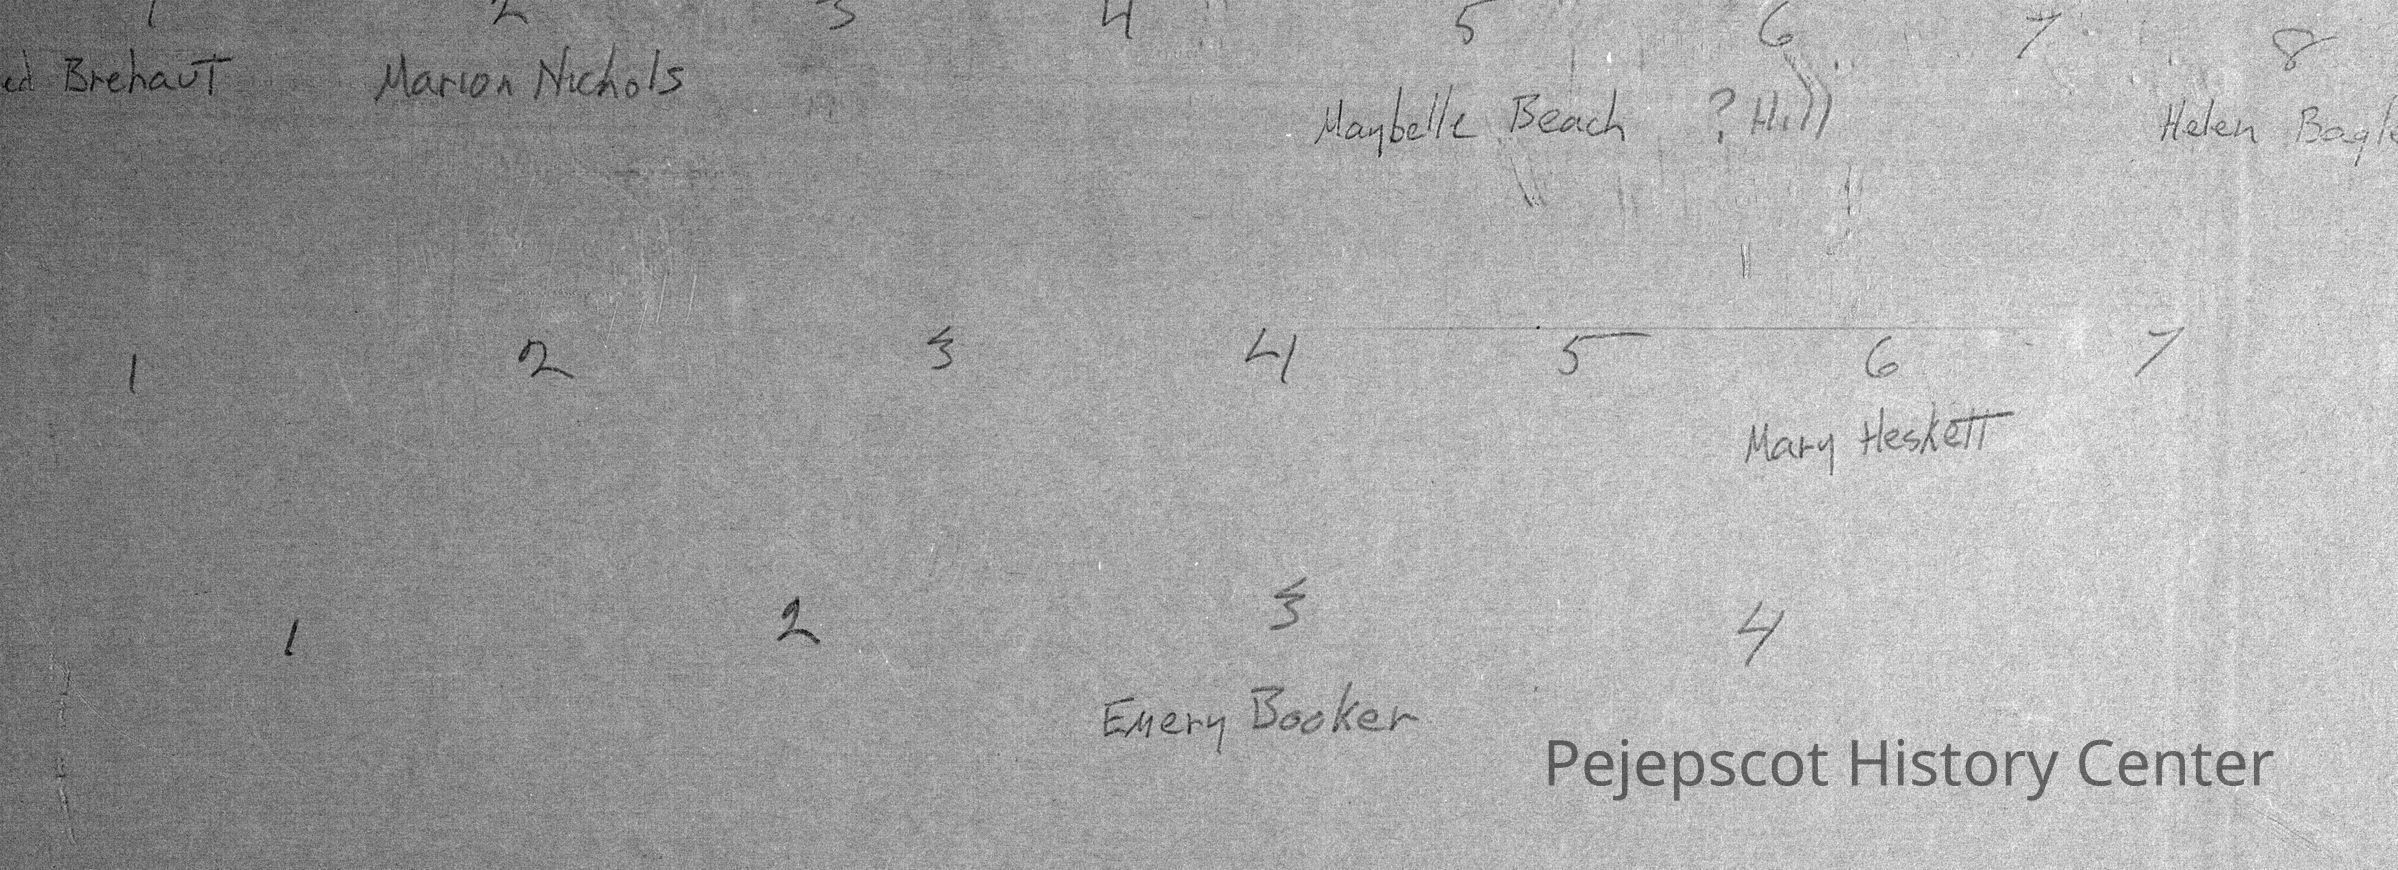 1 2 3 4 5 6 7 8
ed Brehaut Marion Nichols Maybelle Beach ? Hill Helen
1 2 3 4 5 6 7
Mary Heskett
1 2 3 4
Emery Booker
Pejepscot History Center